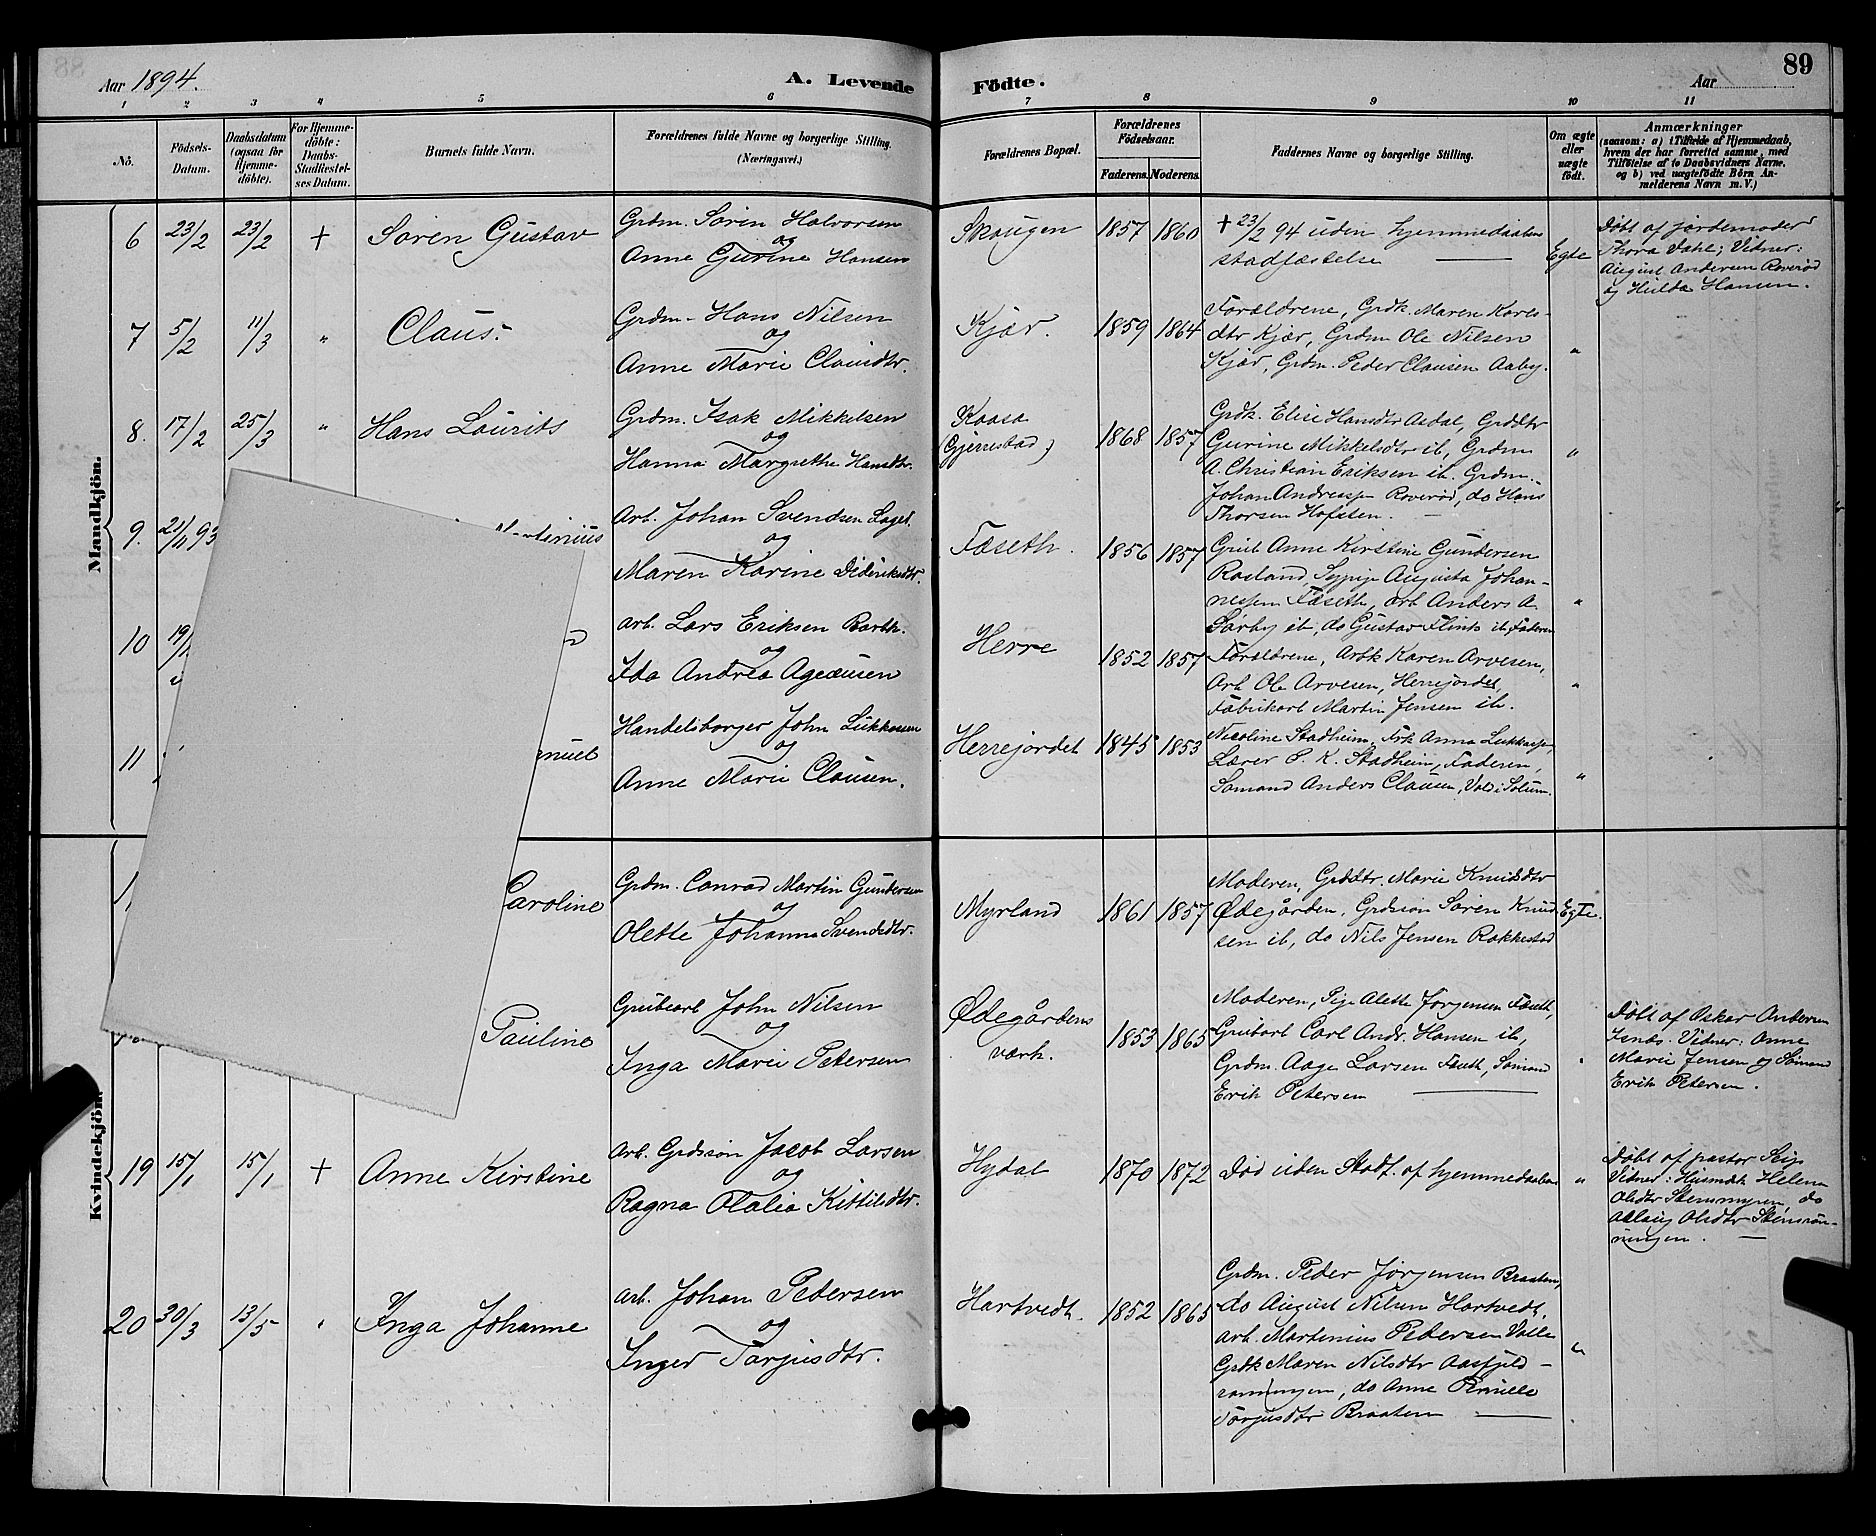 Aar 1894.
A. Levende
Födte.
Aar
89
1 2 3 4 5 6 7 8 9 10 11
No.
Födsels-
Datum.
Daabsdatum
(ogsaa for
Hjemme-
döbte).
For Hjemme-
döbte:
Daabs-
Stadfæstel-
ses Datum.
Barnets fulde Navn.
Forældrenes fulde Navne og borgerlige Stilling.
(Næringsvei.)
Forældrenes Bopæl.
Forældrenes
Födselsaar.
Faderens.
Moderens.
Faddernes Navne og borgerlige Stilling.
Om ægte
eller
uægte
födt.
Anmærkninger
(saasom: a) i Tilfælde af Hjemmedaab,
hvem der har forrettet samme, med
Tilföielse af to Daabsvidners Navne,
og b) ved uægtefödte Börn An-
melderens Navn m. V.)
Mandkjön.
6 23/2 23/2 + Sören Gustav
Grdm. Sörin Halvorsen
og
Anne Gurine Hansen
Skougen 1857 1860
+ 23/2 94 uden hjemmedaabens
stadfæstelse
Egte
Döbt af jordemoder
Thora Dahl; Vidner:
August Andersen Roveröd
og Hulda Hansen.
7 5/2 11/3 " Claus.
Grdm. Hans Nilsen
og
Anne Marie Clausdtr.
Kjær. 1859 1864
Forældrene, Grdk. Maren Kares-
dtr Kjær, Grdm Ole Nilsen
Kjær, Grdm. Peder Clausen Aaby.
"
8. 17/2 25/3 " Hans Laurits
Grdm. Isak Mikkelsen
og
Hanna Margrethe Hansdtr.
Kaasa
(Gjerrestad) 1868 1857
Grdk. Elise Hansdtr Asdal, Grddtr
Gurine Mikkelsdtr ib, Grdm
A. Christian Eriksen ib. Grdm.
Johan Andreasen Roveröd, do Hans
Thorsen Hafsten.
"
9. 21/11 93
Arb. Johan Svendsen
og
Maren Karine Dideriksdtr.
Fæseth. 1856 1857
Grub Anne Kirstine Gundersen
Rosland, Sypige Augusta Johan-
nessen Fæseth, arb Anders A.
Sörby ib, do Gustav Flints ib, Faderen
"
10
arb. Lars Eriksen Barth.
og
Ida Andrea Ageusen
Herre 1852 1857
Forældrene, Arbk Karen Arvesen,
Arb Ole Arvesen, Herrejordet,
Fabrikarb Martin Jensen ib.
"
11
Handelsborger John Lukkasen
og
Anne Marie Clausen.
Herrejordet 1845 1853
Nicoline Stadheim, Frk Anna
Lærer S. K. Stadheim, Faderen,
Sömand Anders Clausen, Vold i Solum.
"
Kvindekjön.
Caroline
Grdm. Conrad Martin Gundersen
og
Olette Johanna Svendsdtr.
Myrland 1861 1857
Moderen, Grddtr. Marie Knudsdtr
Ødegården, Grdsön Sören Knud-
sen ib, do Nils Jensen Rakkestad
Egte.
Pauline
Grubearb John Nilsen
og
Inga Marie Petersen
Ødegårdens
værk. 1853 1865
Moderen, Pige Alette Jörgensen Fæseth,
Grubarb Carl Andr. Hansen ib,
Grdm. Aage Larsen Fæseth, Sömand
Erik Petersen
"
Döbt af Oskar Andersen
Vidner: Anne
Marie Jensen og Sömand
Erik Petersen.
19 15/1 15/1 + Anne Kirstine
Arb. Grdsön Jacob Larsen
og
Ragna Olalia Kittilsdtr.
Hydal 1870 1872
Död uden Stadf. af hjemmedaaben
"
Döbt af pastor
Vidner: Husmdk Helene
Olsdtr Stemmyren do
Aslaug Olsdtr
ningen.
20 30/3 13/5 " Inga Johanne
arb. Johan Pedersen
og
Inger Tarjusdtr.
Hartvedt. 1852 1865
Grdm. Peder Jörgensen Braaten,
do August Nilsen Hartvedt,
arb. Martinius Pedersen Valle
Grdk Maren Nilsdtr
do Anne Pernille
Tarjusdtr Braaten
"